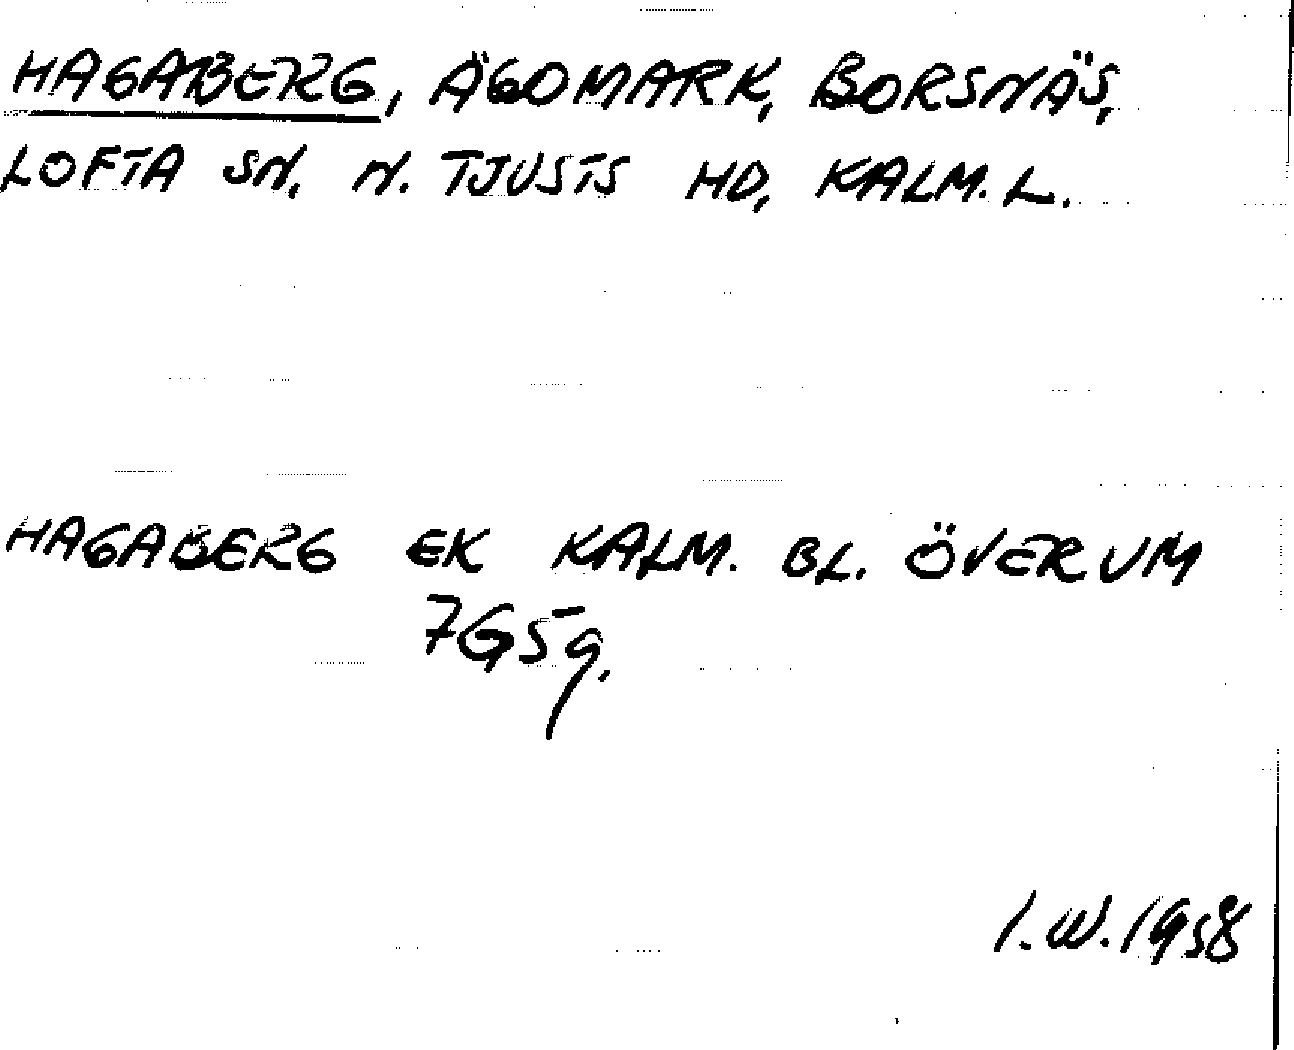 HAGABERG, ÄGOMARK, BORSNÄS,
LOFTA SN. N. TJUSTS HD, KALM. L.
HAGABERG EK KALM. BL. ÖVERUM
7G5g.
I.W. 1958